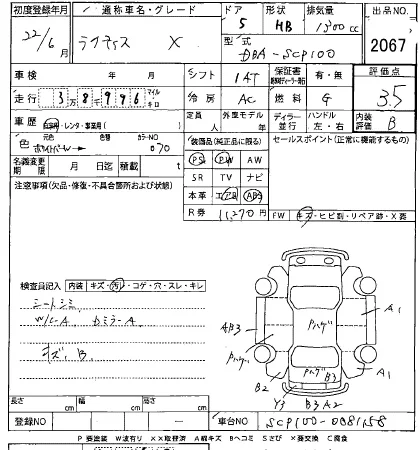 初度登録年月 通称車名・グレード ドア 形状 排気量 出品NO.
22/6月 ラクティス X 5 HB 1300cc
型式 DBA-SCP100 2067
車検 年 月 シフト IAT 保証書 有・無 評価点
走行 38996 マイル キロ 冷房 AC 燃料 G 3.5
車歴 自家用・レンタ・事業用( ) 定員 人 外装モデル ディーラー 並行 ハンドル 左・右 内装評価 B
色 元色 色替 カラーNO 070
装備品(純正品に限る) セールスポイント(正常に機能するもの)
PS PW AW
名義変更期限 月 日迄 積載 t
SR TV ナビ
注意事項(欠品・修復・不具合箇所および状態)
本革 エアB ABS
R券 11,270円 FW キズ・ヒビ割・リペア跡・X要
検査員記入 内装 キズ・汚れ・コゲ・穴・スレ・キレ
シートシミ
W/C-A DミラーA
キズ、B
AB3 Pハゲ A1
Pハゲ A1
B2 Pハゲ B3
Y3 B3A2
長さ cm 幅 cm 高さ cm
登録NO — 車台NO SCP100-0081158
P 要塗装 W波有り XX取替済 A線キズ Bヘコミ Sさび X要交換 C腐食